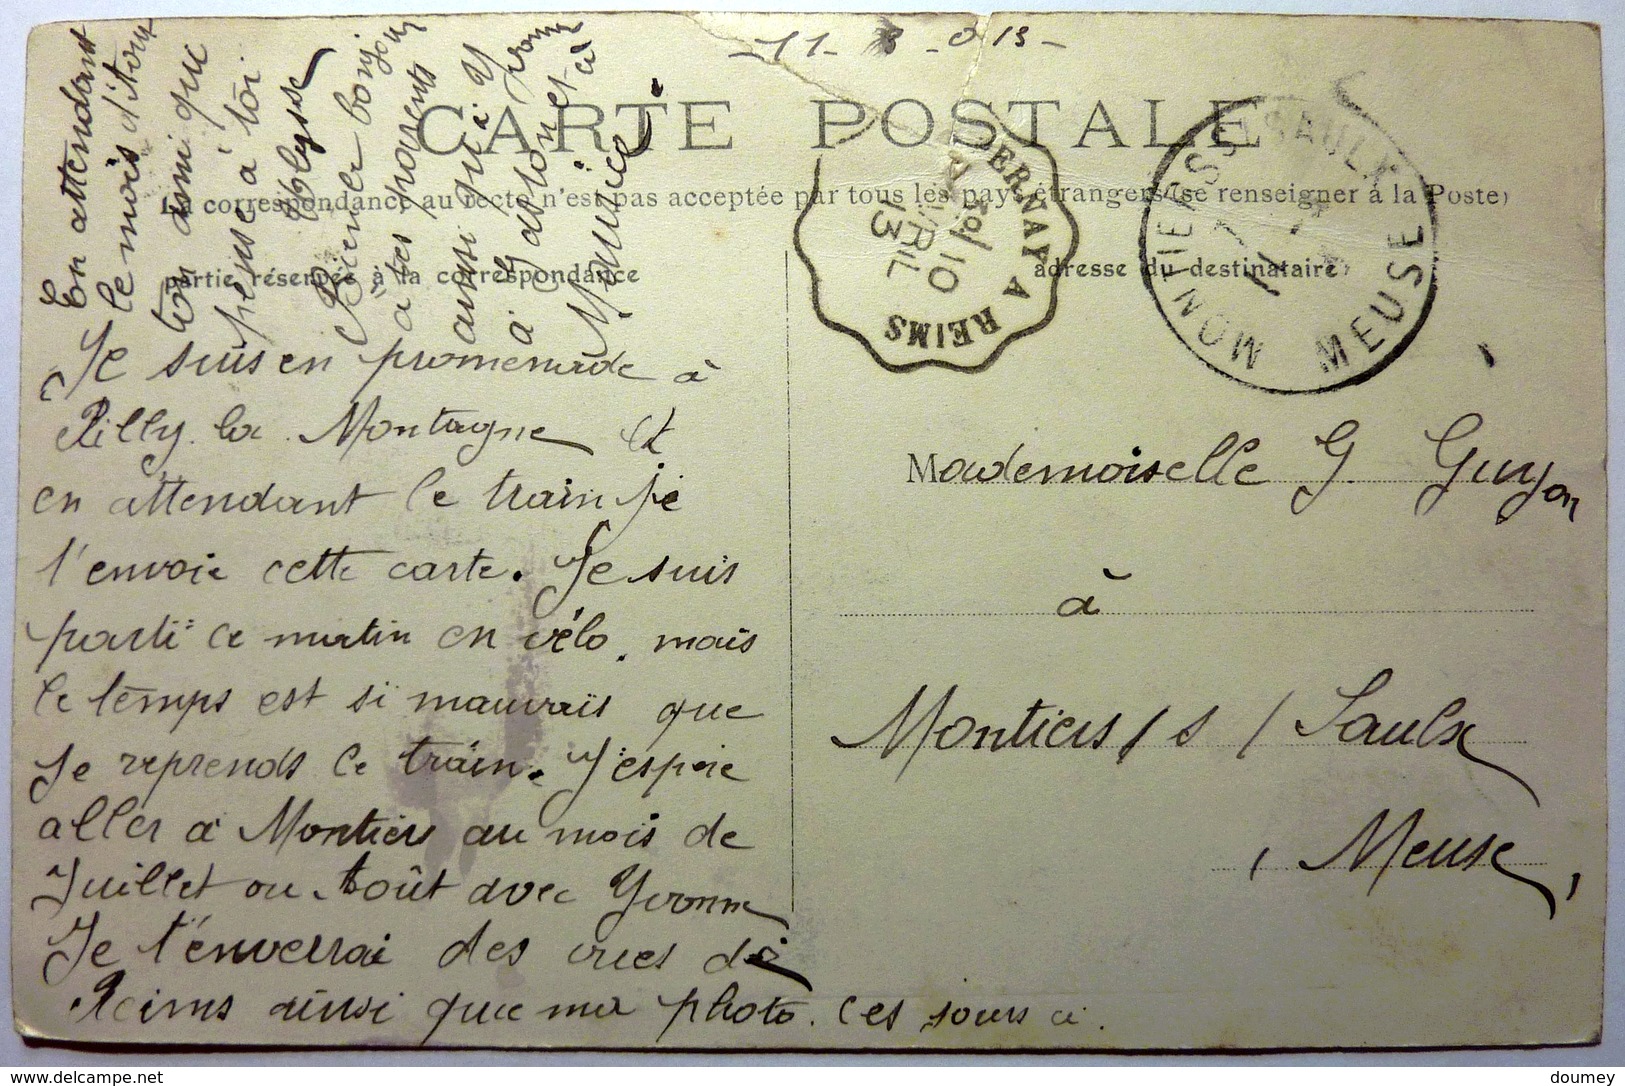 -11-3-913-
CARTE POSTALE
La correspondance au recto n'est pas acceptée par tous les pays étrangers (se renseigner à la Poste)
partie réservée à la correspondance
adresse du destinataire
EPERNAY A REIMS
10 AVRIL 13
MONTIERS S SAULX
MEUSE
Je suis en promenade à
Rilly la Montagne et
en attendant le train je
t'envoie cette carte. Je suis
parti ce matin en vélo. mais
le temps est si mauvais que
je reprends le train. J'espère
aller à Montiers au mois de
Juillet ou Août avec Yvonne
Je t'enverrai des vues de
Reims ainsi que ma photo. ces jours ci.
En attendant
le mois d'Août
ton ami qui
pense à toi
Bien le bonjour
à tes parents
ainsi qu'à Yvonne
à Gaston et à
Maurice
Mademoiselle G. Guyon
à
Montiers / s / Saulx
, Meuse,
doumey